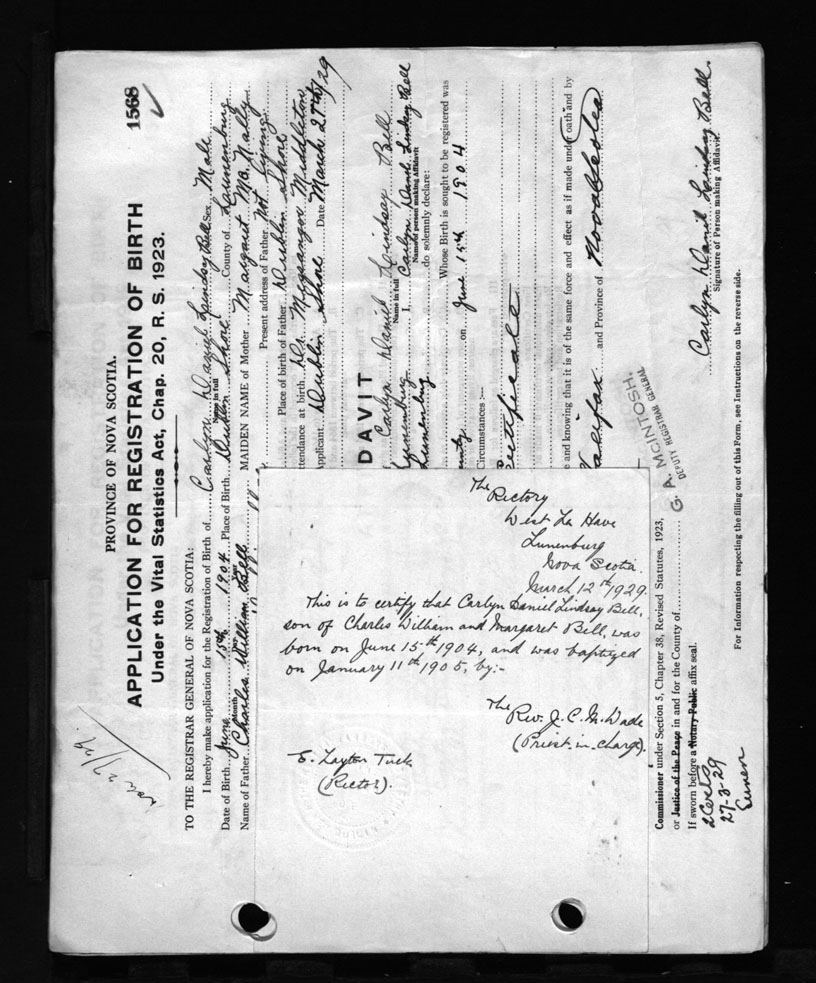 1568
PROVINCE OF NOVA SCOTIA.
APPLICATION FOR REGISTRATION OF BIRTH
Under the Vital Statistics Act, Chap. 20, R. S. 1923.
TO THE REGISTRAR GENERAL OF NOVA SCOTIA:
I hereby make application for the Registration of Birth of Carlyn Daniel Lindsay Bell Sex Male
Name in full
Date of Birth June 15th 1904 Place of Birth Dublin Shore County of Lunenburg
Month Day Year
Name of Father Charles William Bell MAIDEN NAME of Mother Margaret Mc Nally
Present address of Father Not Living
Place of birth of Father Dublin Shore
ttendance at birth Dr. Middleton
Applicant Dublin Shore Date March 27th/29
DAVIT
Carlyn Daniel Lindsay Bell
Name in full
Lunenburg I, Carlyn Daniel Lindsay Bell
Name of person making Affidavit
Lunenburg do solemnly declare:
Whose Birth is sought to be registered was
unty on June 15th 1904
Circumstances:—
Certificate
e and knowing that it is of the same force and effect as if made under oath and by
Halifax and Province of Nova Scotia
G. A. McINTOSH.
DEPUTY REGISTRAR GENERAL
Carlyn Daniel Lindsay Bell.
Signature of Person making Affidavit.
Commissioner under Section 5, Chapter 38, Revised Statutes, 1923,
or Justice of the Peace in and for the County of
If sworn before a Notary Public affix seal.
2 Certs
27-3-29
Lunen
For Information respecting the filling out of this Form, see Instructions on the reverse side.
The Rectory
West La Have
Lunenburg
Nova Scotia.
March 12th 1929.
This is to certify that Carlyn Daniel Lindsay Bell,
son of Charles William and Margaret Bell, was
born on June 15th 1904, and was baptized
on January 11th 1905, by:-
The Rev. J. C. M. Wade
(Priest-in-charge).
E. Layton Tuck
(Rector).